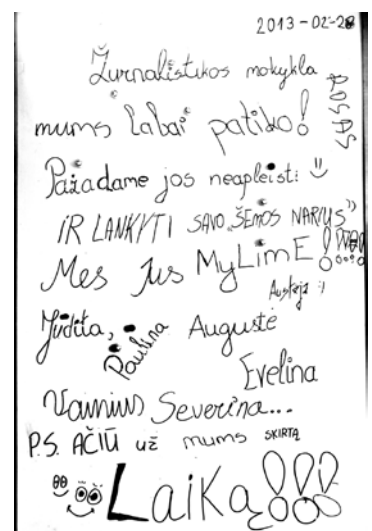 2013-02-28
Žurnalistikos mokykla
mums labai patiko!
ROSAS
Pažadame jos neapleisti
IR LANKYTI SAVO „ŠEMOS NARIUS"
Mes Jus MyLimE!!!
Austėja :)
Judita, Paulina Augustė
Evelina
Vainius Severina...
P.S. AČIŪ už mums SKIRTĄ
LaiKą!!!